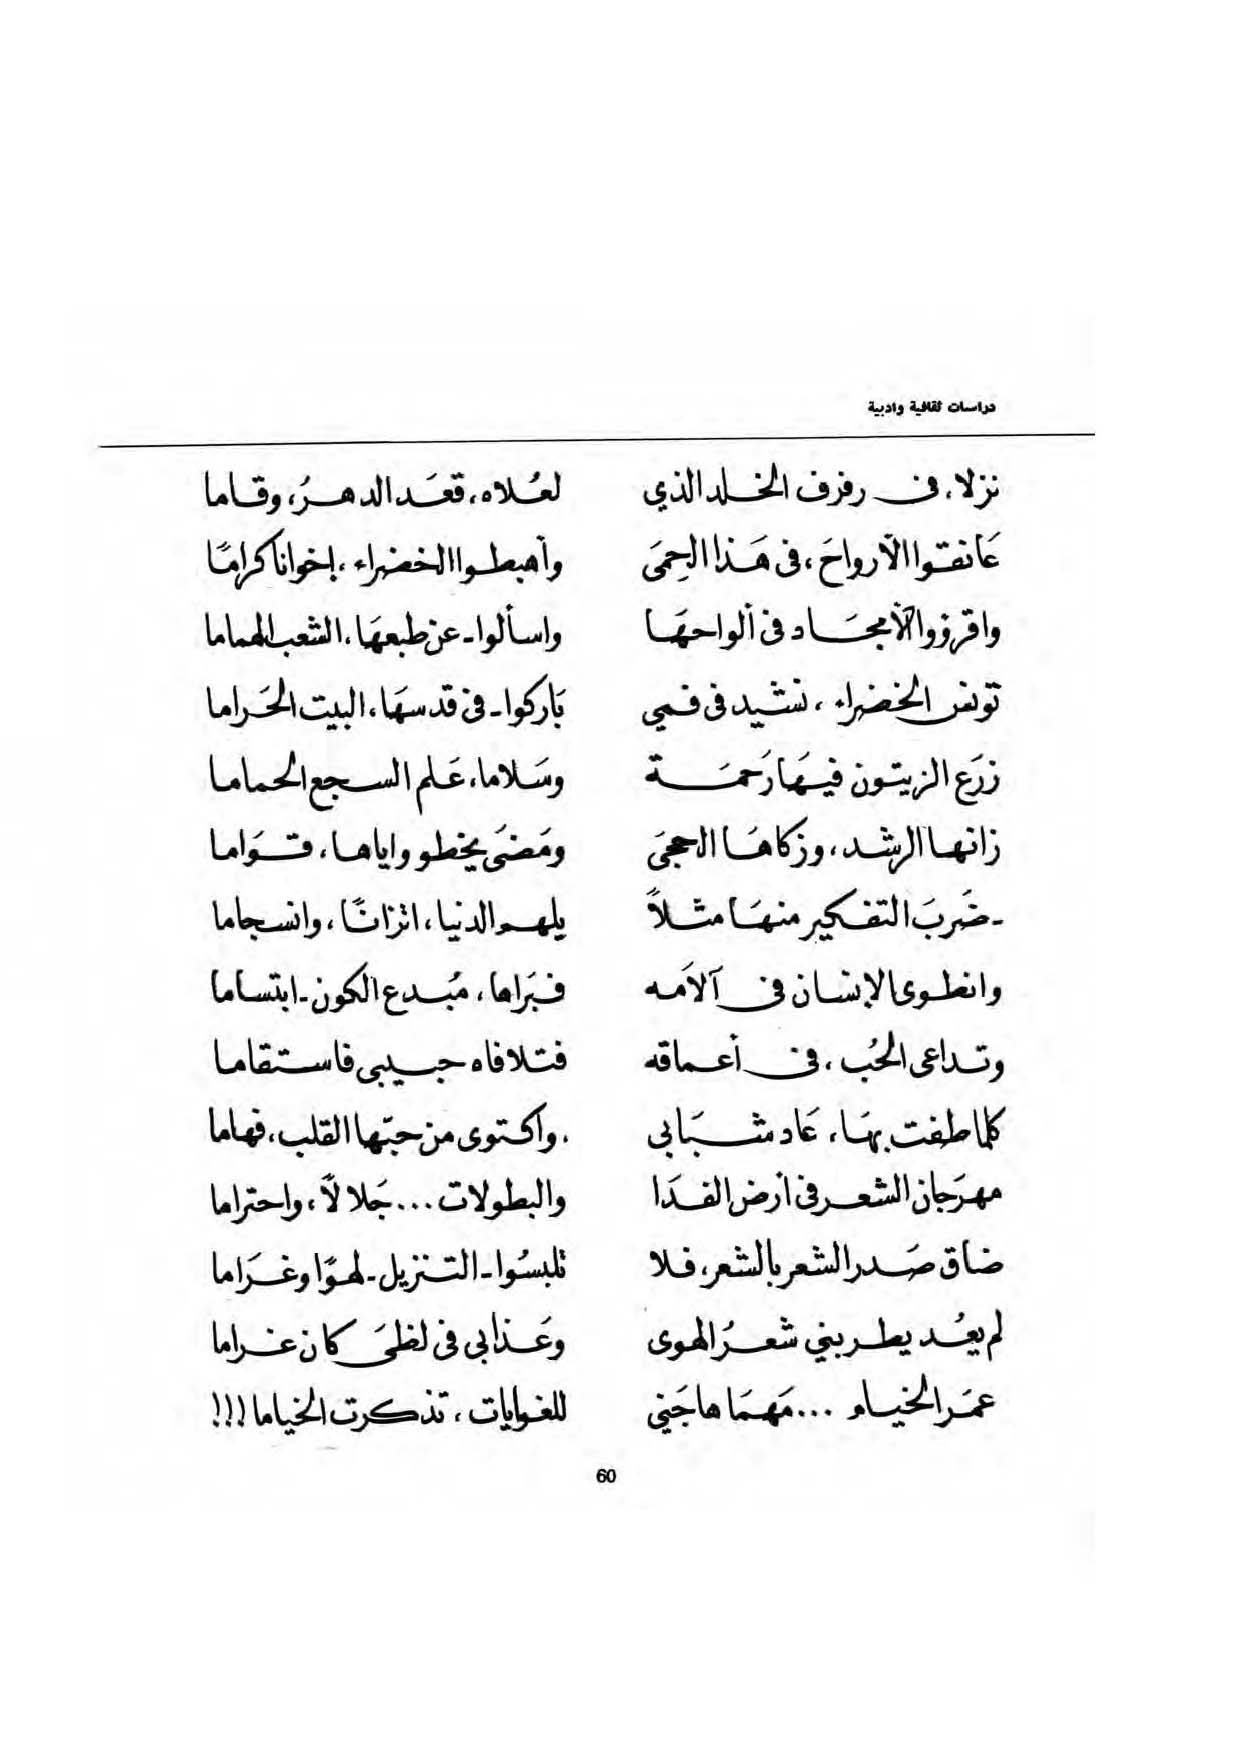 دراسات ثقافية وادبية
نزلا، في رفرف الخلد الذي لعُلاه، قعَد الدهرُ، وقاما
عَانقوا الأرواحَ، في هَذا الحِمَى وأهبطوا الخضراء، إخوانا كرامًا
واقرؤوا الأمجَاد في ألواحهَا واسألوا - عن طبعهَا، الشعب الهماما
تونس الخضراء، نشيد في فمي بَاركوا - في قدسهَا، البيت الحَراما
زرَع الزيتون فيهَا رَحمَة وسَلاما، عَلم السجع الحماما
زانها الرشد، وزكاهَا الحجَى ومَضَى يخطو واياها، قوَاما
- ضَربَ التفكير منهَا مثلاً يلهم الدنيا، اتزانًا، وانسجاما
وانطوى الإنسان في آلامَه فبَراها، مُبدع الكون - ابتساما
وتداعى الحُب، في أعماقه فتلافاه حبيبي فاستقاما
كلما طفت بهَا، عَاد شبَابي واكتوى من حبّها القلب، فهاما
مهرَجان الشعر في أرض الفدَا والبطولات... جَلالاً، واحتراما
ضاق صَدر الشعر بالشعر، فلا تلبسُوا - التنزيل - لهوًا وغرَاما
لم يعُد يطربني شعرُ الهوى وعَذابي في لظىَ كان غراما
عمَر الخيام ... مَهمَا هاجَني للغوايات، تذكرت الخياما !!!
60